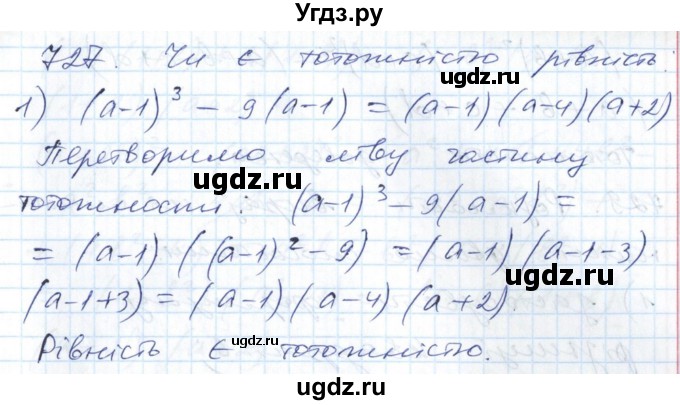 Угдз.ру
727. Чи є тотожністю рівність.
1) (a-1)³ - 9(a-1) = (a-1)(a-4)(a+2)
Перетворимо ліву частину
тотожности: (a-1)³ - 9(a-1) =
= (a-1)((a-1)² - 9) = (a-1)(a-1-3)
(a-1+3) = (a-1)(a-4)(a+2).
Рівність є тотожністю.
ugdz.ru
ugdz.ru
ugdz.ru
ugdz.ru
ugdz.ru
ugdz.ru
ugdz.ru